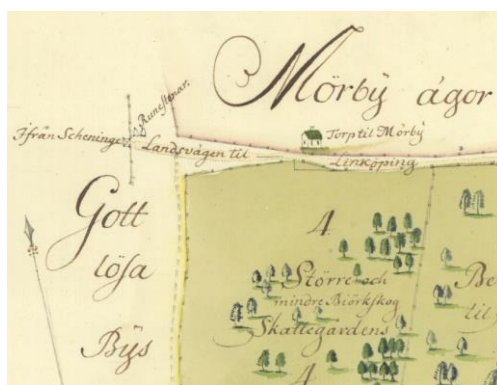 Mörbÿ ágor
Runestenar.
Ifrån Scheninge
Landsvägen til
Torp til Mörbÿ
Linköping
Gott
lösa
Bÿs
4
Större och
mindre Biörkskog
Skattegårdens
4
Be
til